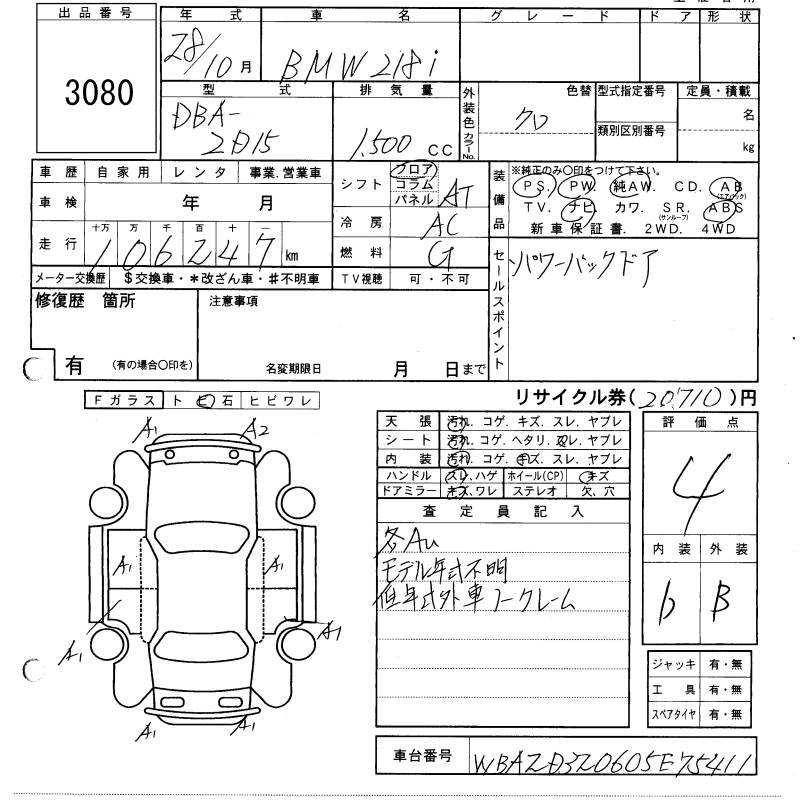 出品番号
3080
年式 車名 グレード ドア 形状
28/10月 BMW 218i
型式 排気量 外装色 カラーNo. 色替 型式指定番号 定員・積載
DBA-2D15 1,500CC クロ 類別区別番号 名 kg
車歴 自家用 レンタ 事業.営業車
車検 年 月
走行 十万 万 千 百 十 一
106247 km
メーター交換歴 $交換車・*改ざん車・#不明車
シフト フロア コラム パネル AT
冷房 AC
燃料 G
TV視聴 可・不可
装備品 ※純正のみ○印をつけて下さい。
PS. PW. 純AW. CD. AB (エアバック)
TV. ナビ カワ. SR. (サンルーフ) ABS
新車保証書. 2WD. 4WD
セールスポイント パワーバックドア
修復歴 箇所 注意事項
有 (有の場合○印を) 名変期限日 月 日まで
リサイクル券(20,710)円
Fガラス トビ石 ヒビワレ
A1 A2
A1 A1
A1 A1
A1 A1
天張 汚れ. コゲ. キズ. スレ. ヤブレ
シート 汚れ. コゲ. ヘタリ. スレ. ヤブレ
内装 汚れ. コゲ. キズ. スレ. ヤブレ
ハンドル スレ.ハゲ ホイール(CP) キズ
ドアミラー キズ.ワレ ステレオ 欠.穴
査定員記入
各AU
モデル年式不明
但年式外車ノークレーム
評価点
4
内装 外装
b B
ジャッキ 有・無
工具 有・無
スペアタイヤ 有・無
車台番号 WBA2D320605E75411